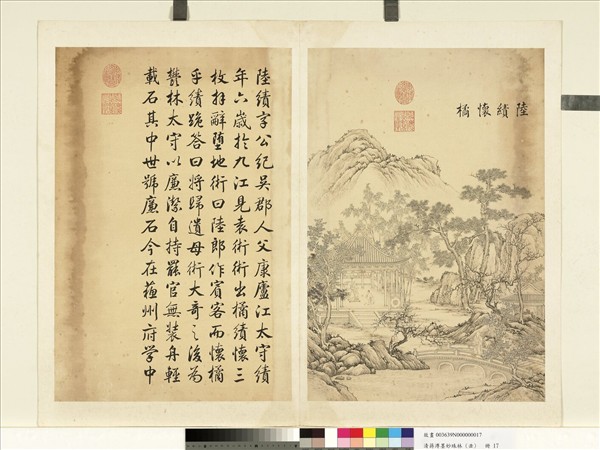 陸績懷橘
陸績字公紀吳郡人父康廬江太守績
年六歲於九江見袁術術出橘績懷三
枚拜辭墮地術曰陸郎作賓客而懷橘
乎績跪答曰將歸遺母術大奇之後為
鬱林太守以廉潔自持罷官無裝舟輕
載石其中世號廉石今在蘓州府学中
故畫 003639N000000017
清蔣溥墨妙珠林（丑） 冊 17